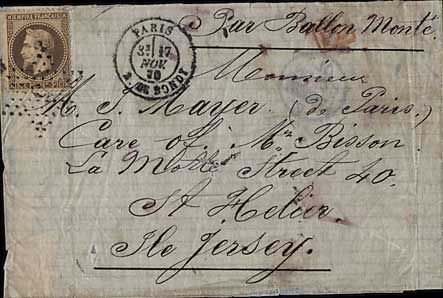 EMPIRE FRANÇAIS
Par Ballon Monté.
PARIS
17
NOV
70
R. DE BONDY
Monsieur
M. S. Mayer. (de Paris.)
Care of. Mr. Bisson.
La Motte Street 40.
St Helier.
Ile Jersey.